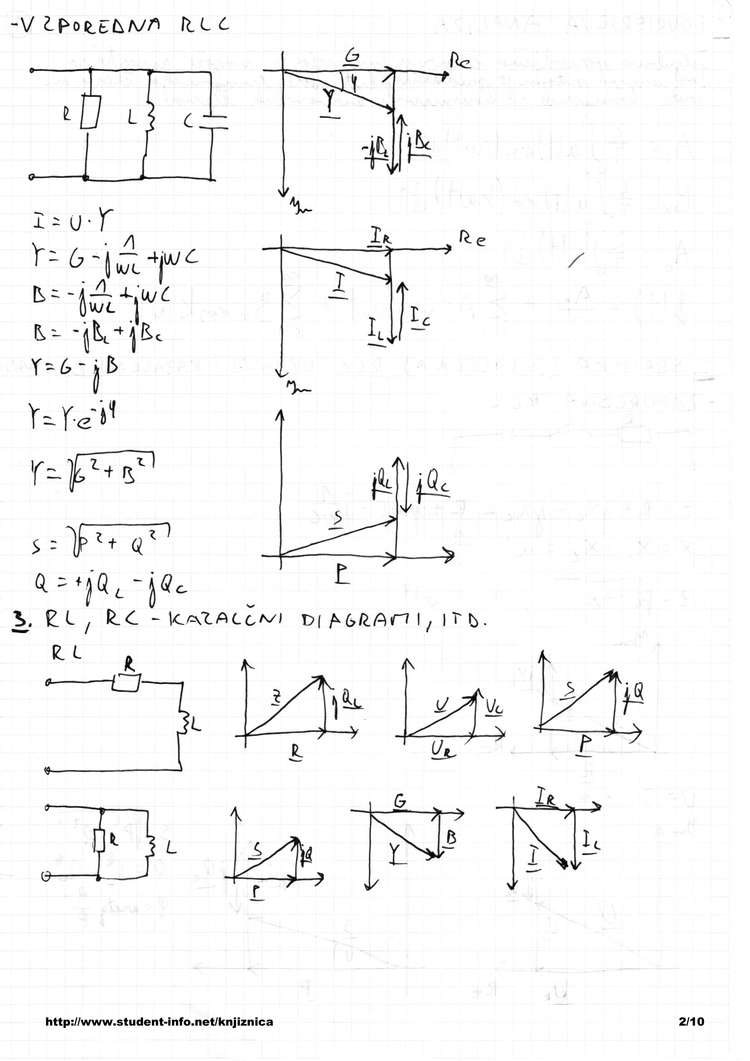 -VZPOREDNA RLC
R L C
G Re
φ
Y
-jBL jBC
Im
I = U·Y
Y = G - j 1/ωL + jωC
B = -j 1/ωL + jωC
B = -jBL + jBC
Y = G - jB
Y = Y·e^-jφ
Y = √(G² + B²)
S = √(P² + Q²)
Q = +jQL - jQC
IR Re
I
IL IC
Im
jQL jQC
S
P
3. RL, RC - KAZALČNI DIAGRAMI, ITD.
RL
R
L
Z jQL
R
U UL
UR
S jQ
P
R L
S jQ
P
G
Y B
IR
I IL
http://www.student-info.net/knjiznica 2/10